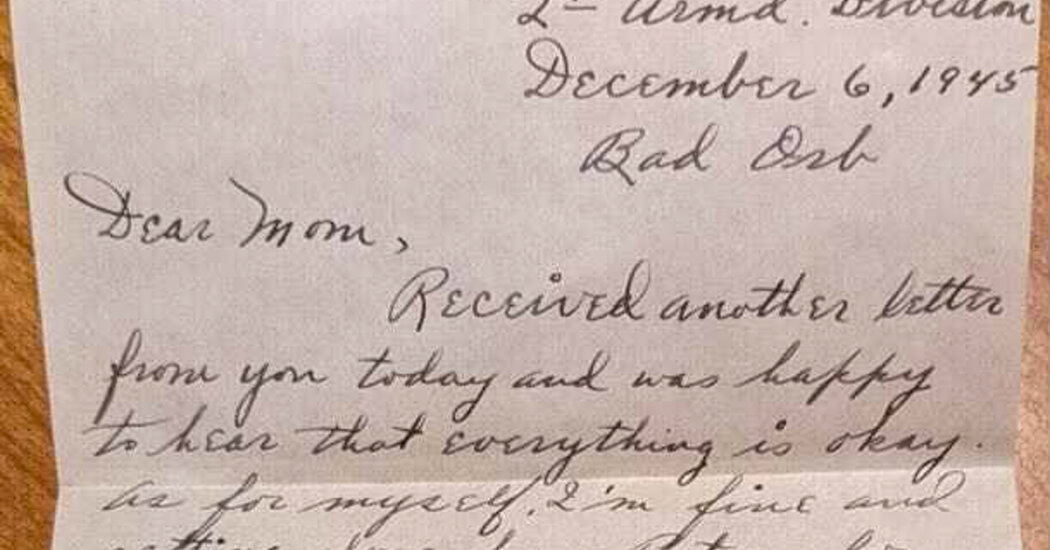 2 Armd. Division
December 6, 1945
Bad Orb
Dear Mom,
Received another letter
from you today and was happy
to hear that everything is okay.
As for myself, I'm fine and